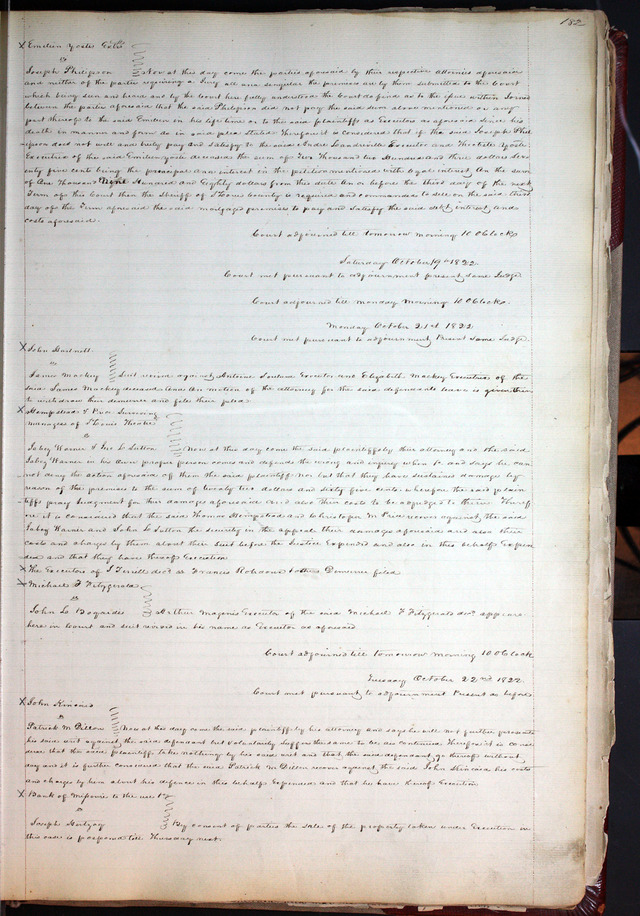 182
X Emilien Yosti Exors
vs
Joseph Philipson Now at this day come the parties aforesaid by their respective attornies aforesaid
and neither of the parties requiring a Jury all and singular the premises are by them submitted to the Court
which being seen and heard and by the Court here fully understood the Court do find as to the issue within Joined
between the parties aforesaid that the said Philipson did not pay the said sum above mentioned or any
part thereof to the said Emilien in his life time or to the said plaintiffs as Executors as aforesaid since his
death in manner and form as in said plea stated Therefore it is considered that if the said Joseph Phil
ipson does not well and truly pay and satisfy to the said Andre Landreville Executor and Theotiste Yosti
Executrix of the said Emilien Yosti deceased the sum of Two Thousand two Hundred and three dollars Sev
enty five cents being the principal and interest in the petition mentioned with legal interest on the sum
of One Thousand Nine Hundred and Eighty dollars from this date on or before the third day of the next
Term of this Court then the Sheriff of St Louis County is required and commanded to sell on the said third
day of the Term aforesaid the said mortgaged premises to pay and satisfy the said debt, interest and
costs aforesaid.
Court adjourned till tomorrow morning 10 OClock
Saturday October 19th 1822
Court met pursuant to adjournment present same Judge
Court adjourned till monday morning 10 OClock.
Monday October 21st 1822
Court met pursuant to adjournment Present same Judge.
X John Hartnett
vs
James Mackey Suit revived against Antoine Soulard Executor and Elizabeth Mackey Executrix of the
said James Mackey deceased and on motion of the attorney for the said defendants leave is given them
to withdraw their demurrer and file their plea.
X Hempstead & Price Surviving
managers of St Louis Theatre
vs
Jabez Warner & Jno L Sutton Now at this day come the said plaintiffs by their attorney and the said
Jabez Warner in his own proper person comes and defends the wrong and injury when &c and says he can
not deny the action aforesaid of them the said plaintiffs nor but that they have sustained damages by
reason of the premises to the sum of twenty two dollars and sixty five cents. wherefore the said plain
tiffs pray Judgment for their damages aforesaid and also their costs to be adjudged to them. Theref
ore it is considered that the said Thomas Hempstead and Christopher M Price recover against the said
Jabez Warner and John L Sutton the security in the appeal their damages aforesaid and also their
costs and charges by them about their suit before the Justice Expended and also in this behalf Expen
ded and that they have thereof Execution
X The Executors of J Terrell decd vs Francis Robidoux & others Demurrer filed
X Michael F Fitzgerald
vs
John Le Bogardes Arthur Magenis Executor of the said Michael F Fitzgerald decd. appears
here in Court and suit revived in his name as Executor as aforesaid
Court adjourned till tomorrow morning 10 OClock
Tuesday October 22nd 1822
Court met pursuant to adjournment Present as before
X John Kincaid
vs
Patrick M Dillon Now at his day come the said plaintiff by his attorney and says he will not further prosecute
his said suit against the said defendant but voluntarily suffers the same to be discontinued Therefore it is consi
dered that the said plaintiff take nothing by his said writ and that the said defendant go thereof without
day and it is further considered that the said Patrick M Dillon recover against the said John Kincaid his costs
and charges by him about his defence in this behalf Expended and that he have thereof Execution
X Bank of Missouri to the use &c
vs
Joseph Hertzog By consent of parties the sale of the property taken under Execution in
this case is postponed till Thursday next.